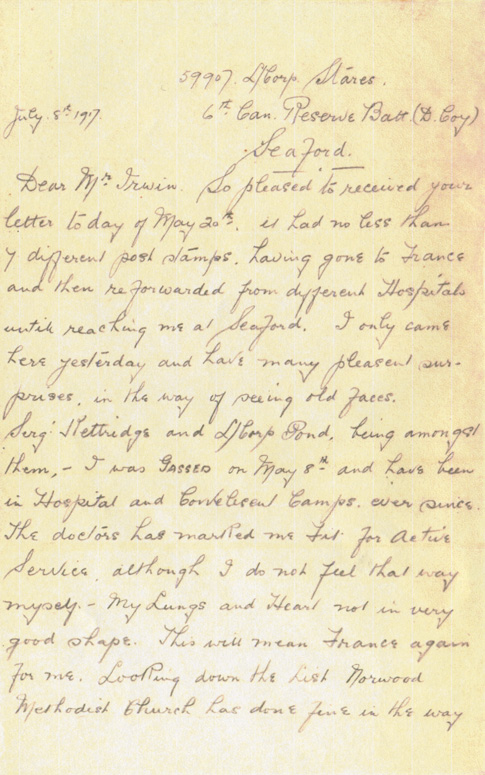 59907. L/Corp. Stares.
July. 8th 1917. 6th Can. Reserve Batt. (D. Coy)
Seaford.
Dear Mr Irwin. So pleased to received your
letter today of May 20th, it had no less than
7 different post stamps, having gone to France
and then reforwarded from different Hospitals
untill reaching me at Seaford. I only came
here yesterday and have many pleasent sur-
prises, in the way of seeing old faces.
Serg. Kettridge and L/Corp Pond, being amongst
them, - I was GASSED on May 8th and have been
in Hospital and Convelisent Camps. ever since.
The doctors has marked me Fit for Active
Service, although I do not feel that way
myself. - My Lungs and Heart not in very
good shape. This will mean France again
for me. Looking down the list Norwood
Methodist Church has done fine in the way